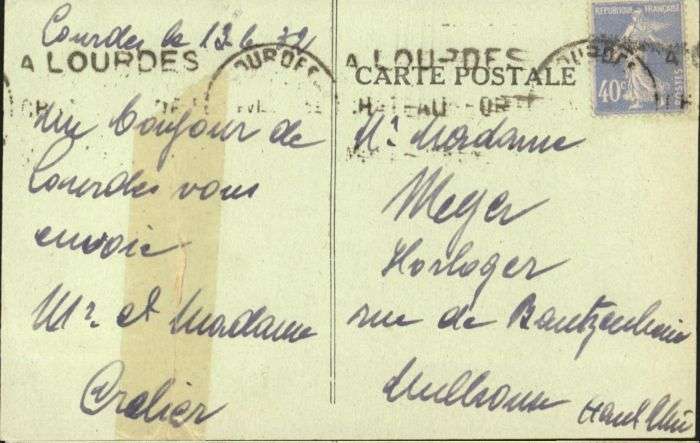 Lourdes le 12 6 32
A LOURDES
LOURDES
Un bonjour de
Lourdes vous
envoie
Mr et Madame
A LOURDES
CHATEAU FORT
CARTE POSTALE
REPUBLIQUE FRANÇAISE
40c
POSTES
Mr Madame
Meyer
Horloger
rue de Bantzenheim
Mulhouse Haut Rhin